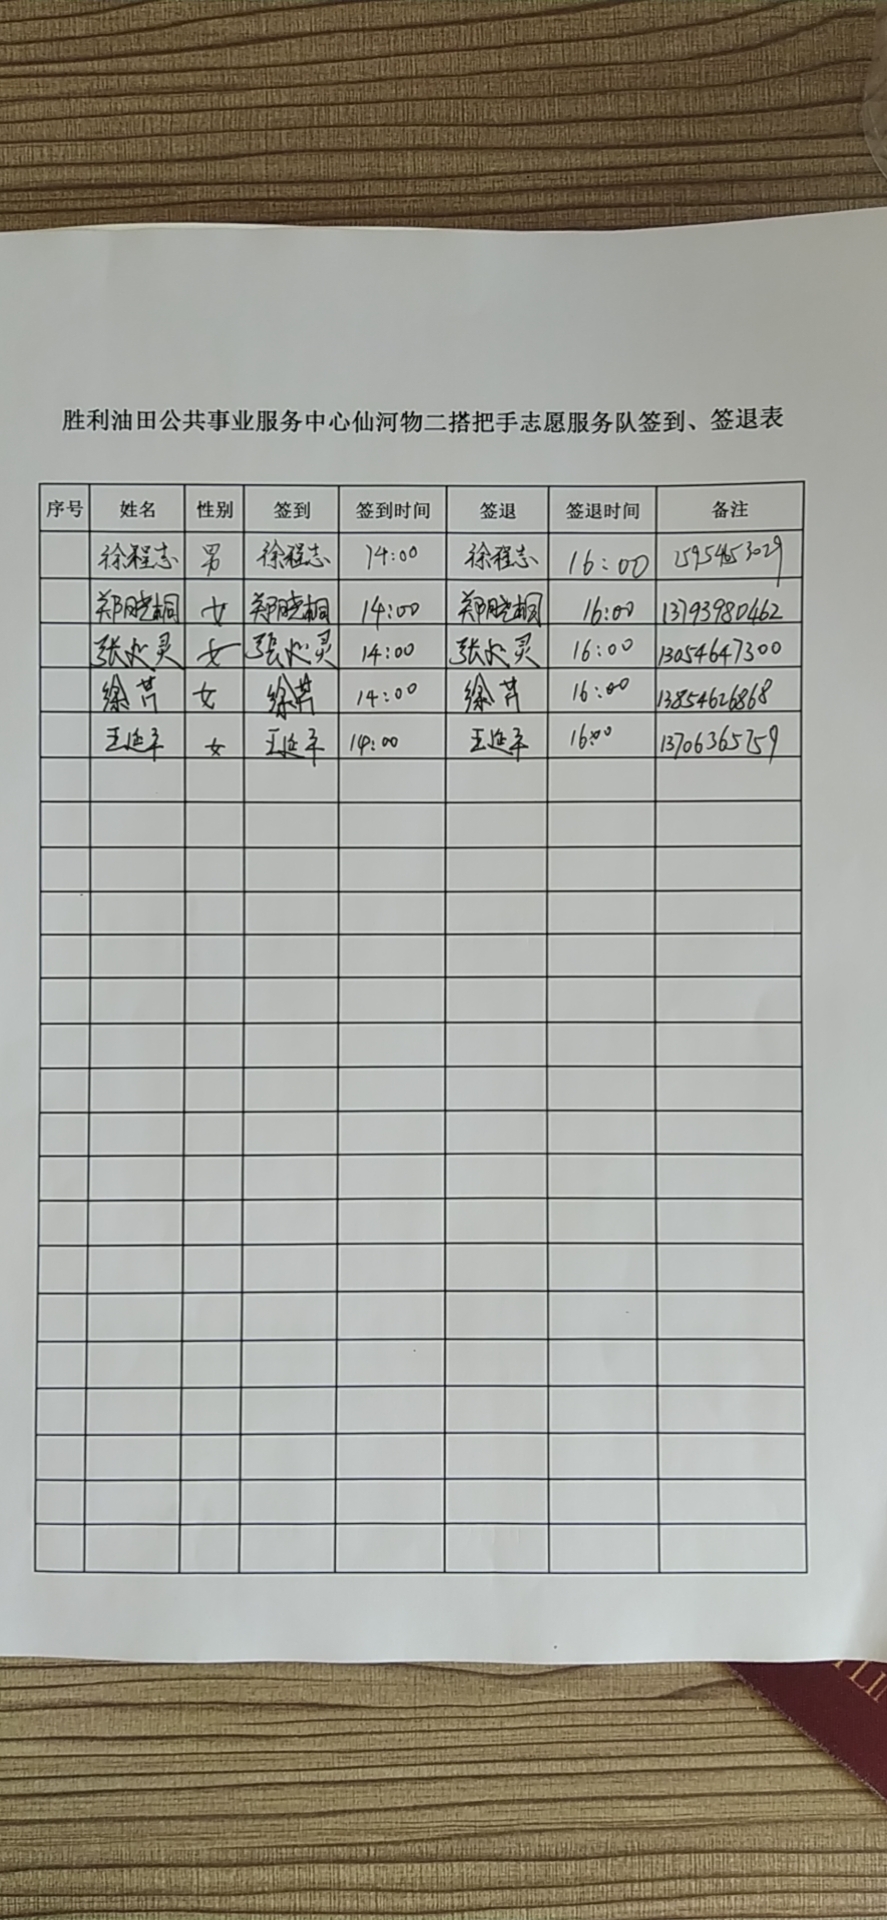 胜利油田公共事业服务中心仙河物二搭把手志愿服务队签到、签退表
序号 姓名 性别 签到 签到时间 签退 签退时间 备注
徐程志 男 徐程志 14:00 徐程志 16:00
郑晓桐 女 郑晓桐 14:00 郑晓桐 16:00 13793980462
张火灵 女 张火灵 14:00 张火灵 16:00 13054647300
徐芹 女 徐芹 14:00 徐芹 16:00 13854626868
王延平 女 王延平 14:00 王延平 16:00 13706365759